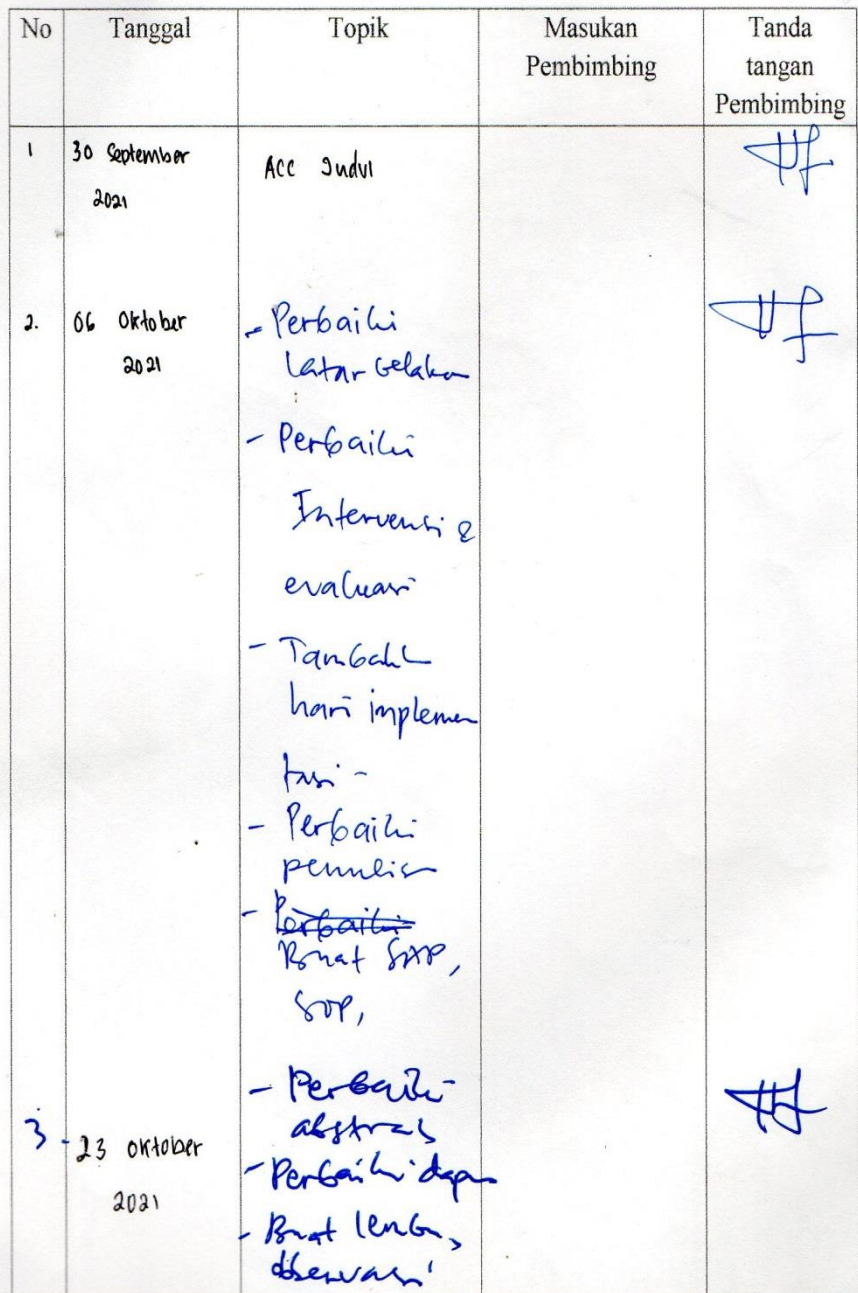 No Tanggal Topik Masukan Pembimbing Tanda tangan Pembimbing
1 30 September 2021 ACC Judul
2. 06 Oktober 2021
- Perbaiki
latar belakan
- Perbaiki
Intervensi &
evaluasi
- Tambah
hari implemen
tasi -
- Perbaiki
penulisan
- Perbaiki
Buat SAP,
SOP,
3 - 23 Oktober 2021
- Perbaiki
abstrak
- Perbaiki dapus
- Buat lembar
observasi